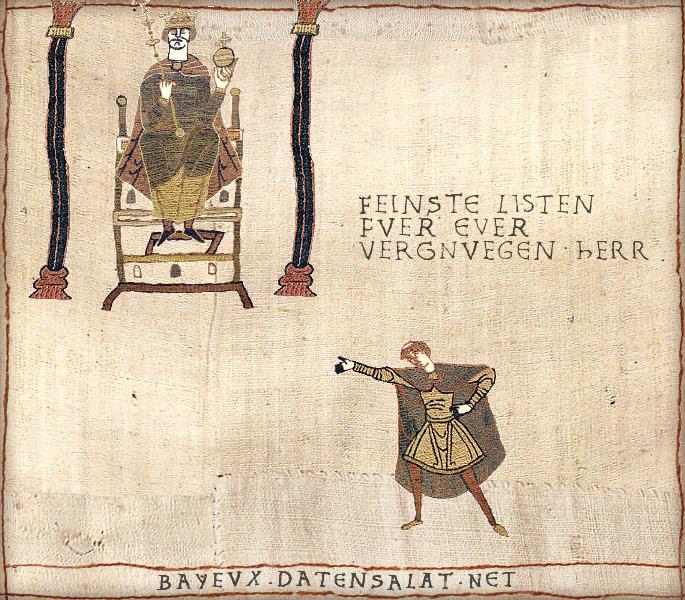 FEINSTE LISTEN
FVER EVER
VERGNVEGEN · HERR
BAYEVX.DATENSALAT.NET